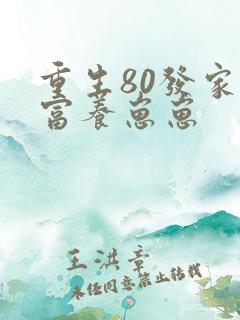 重生80發家
富養崽崽
王洪章
未经同意禁止转载